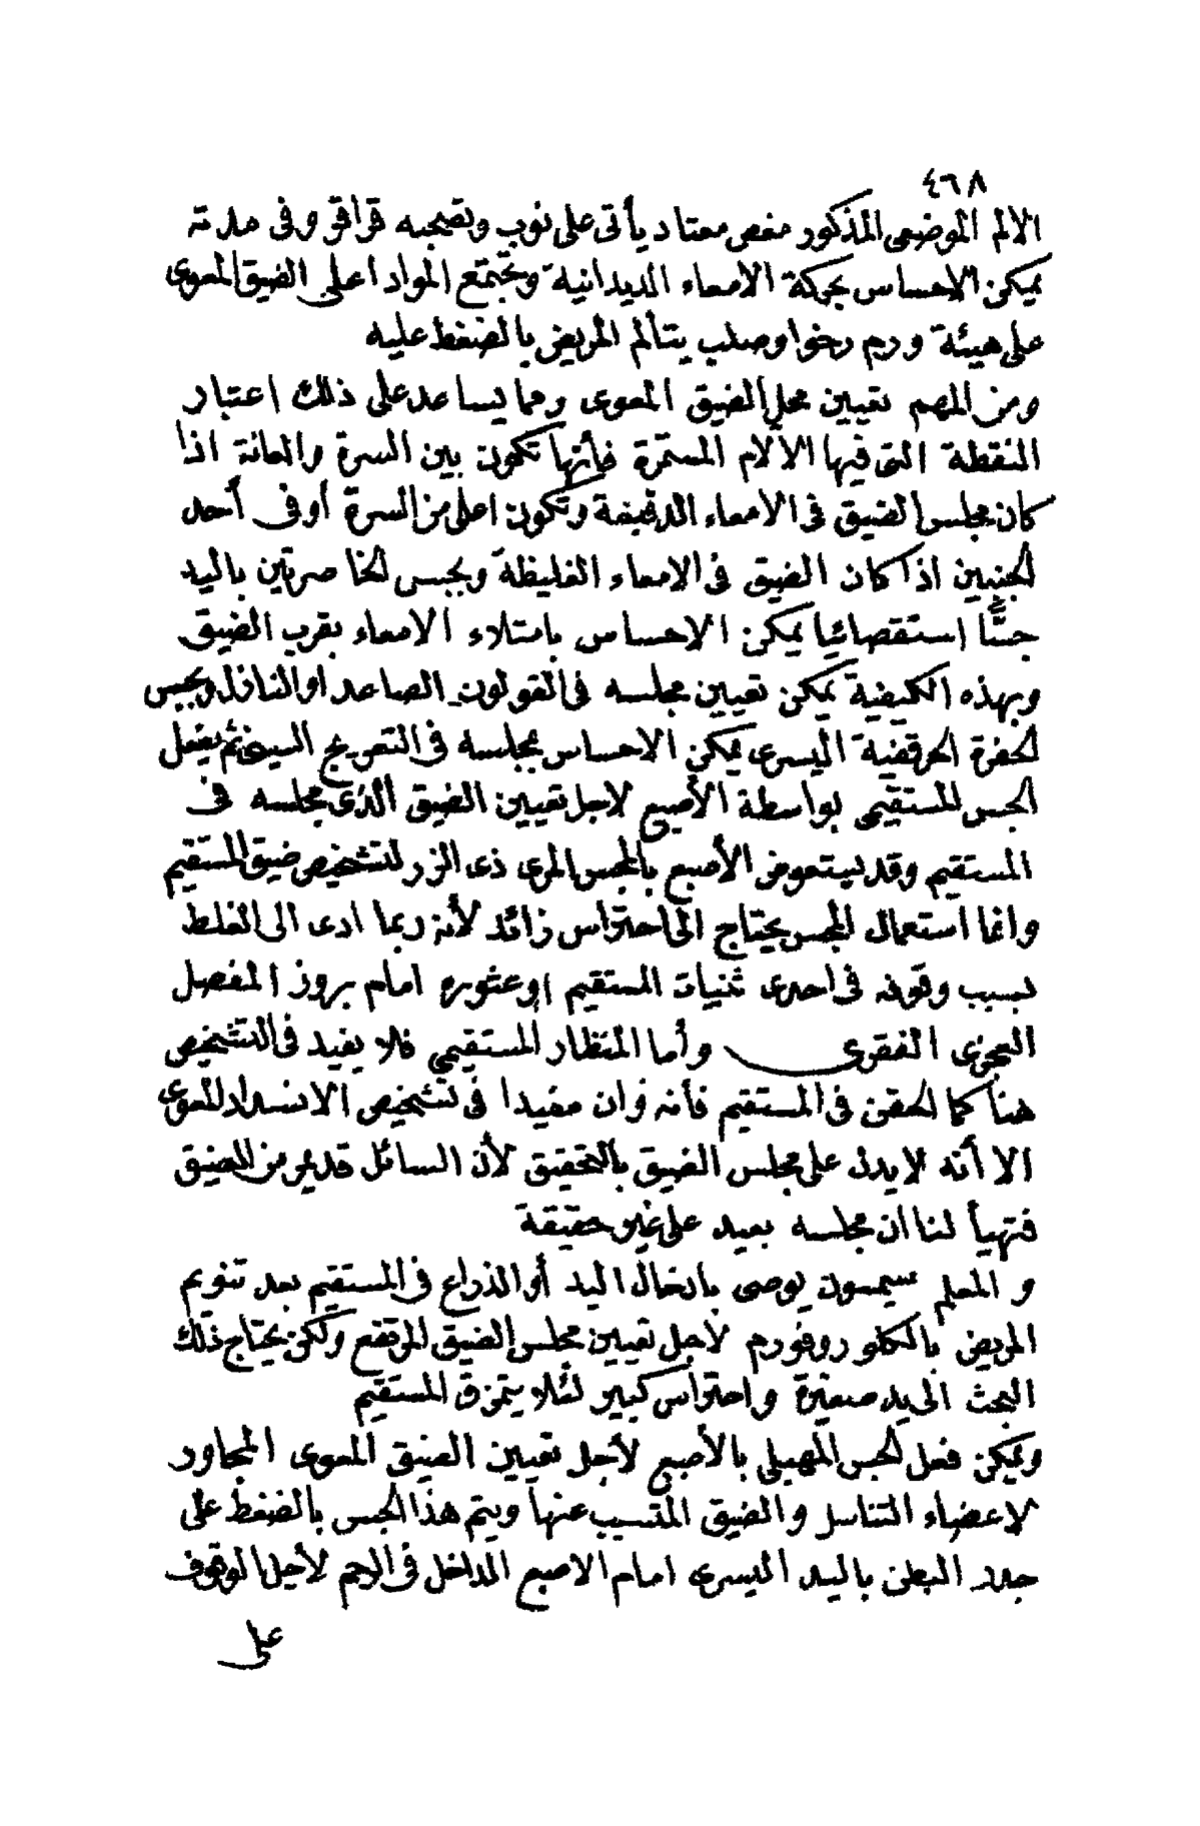 ٤٦٨
الالم الموضعى المذكور مغص معتاد يأتى على نوب وتصحبه قراقر وفى مدته
يمكن الاحساس بحركة الامعاء الديدانية وتجتمع المواد اعلى الضيق المعوى
على هيئة ورم رخوا وصلب يتألم المريض بالضغط عليه
ومن المهم تعيين محل الضيق المعوى ومما يساعد على ذلك اعتبار
النقطة التى فيها الآلام المستمرة فأنها تكون بين السرة والعانة اذا
كان مجلس الضيق فى الامعاء الدقيقة وتكون اعلى من السرة أو فى أحد
الجنبين اذا كان الضيق فى الامعاء الغليظة وبجس الخاصرتين باليد
جسًّا استقصائيا يمكن الاحساس بامتلاء الامعاء بقرب الضيق
وبهذه الكيفية يمكن تعيين مجلسه فى القولون الصاعد او النازل وبجس
الحفرة الحرقفية اليسرى يمكن الاحساس بمجلسه فى التعريج السينى ثم يفعل
الجس المستقيمى بواسطة الأصبع لاجل تعيين الضيق الذى مجلسه فى
المستقيم وقد يستعوض الأصبع بالمجس المرى ذى الزر لتشخيص ضيق المستقيم
وانما استعمال المجس يحتاج الى احتراس زائد لأنه ربما ادى الى الغلط
بسبب وقوفه فى احدى ثنيات المستقيم او عثوره امام بروز المفصل
العجزى الفقرى وأما المنظار المستقيمى فلا يفيد فى التشخيص
هنا كما الحقن فى المستقيم فأنه وان مفيدا فى تشخيص الانسداد المعوى
الا أنه لا يدل على مجلس الضيق بالتحقيق لأن السائل قد يمر من الضيق
فتهيأ لنا ان مجلسه بعيد على غير حقيقة
و المعلم سيمسون يوصى بادخال اليد أو الذراع فى المستقيم بعد تنويم
المريض بالكلوروفورم لأجل تعيين مجلس الضيق المرتفع ولكن يحتاج ذلك
البحث الى يد صغيرة واحتراس كبير لئلا يتمزق المستقيم
ويمكن فعل الجس المهبلى بالأصبع لأجل تعيين الضيق المعوى المجاور
لاعضاء التناسل والضيق المتسبب عنها ويتم هذا الجس بالضغط على
جدر البطن باليد اليسرى امام الاصبع الداخل فى الرحم لأجل الوقوف
على